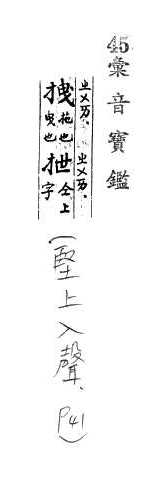 45彙音寶鑑
ㄓㄨㄞ、
拽 拖也 曳也
ㄓㄨㄞ、
抴 仝上字
(堅上入聲、P41)